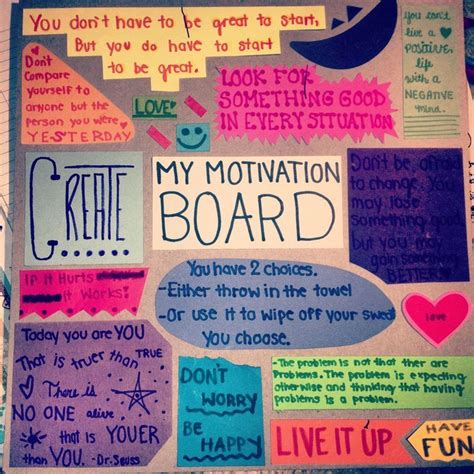 You don't have to be great to start,
But you do have to start
to be great.
you can't
live a
POSITIVE
life
with a
NEGATIVE
mind.
Don't
Compare
yourself to
anyone but the
person you were
YESTERDAY
LOVE
LOOK FOR
SOMETHING GOOD
IN EVERY SITUATION
CREATE
MY MOTIVATION
BOARD
Don't be afraid
to change. You
may lose
something good
but you may
gain something
BETTER!
If it Hurts
it Works!
You have 2 choices.
-Either throw in the towel
-Or use it to wipe off your sweat
You choose.
love
Today you are YOU
That is truer than TRUE
There is
NO ONE alive
that is YOUER
than YOU. -Dr. Seuss
DON'T
WORRY
BE
HAPPY
-The problem is not that ther are
Problems. The problem is expecting
otherwise and thinking that having
problems is a problem.
LIVE IT UP
HAVE
FUN